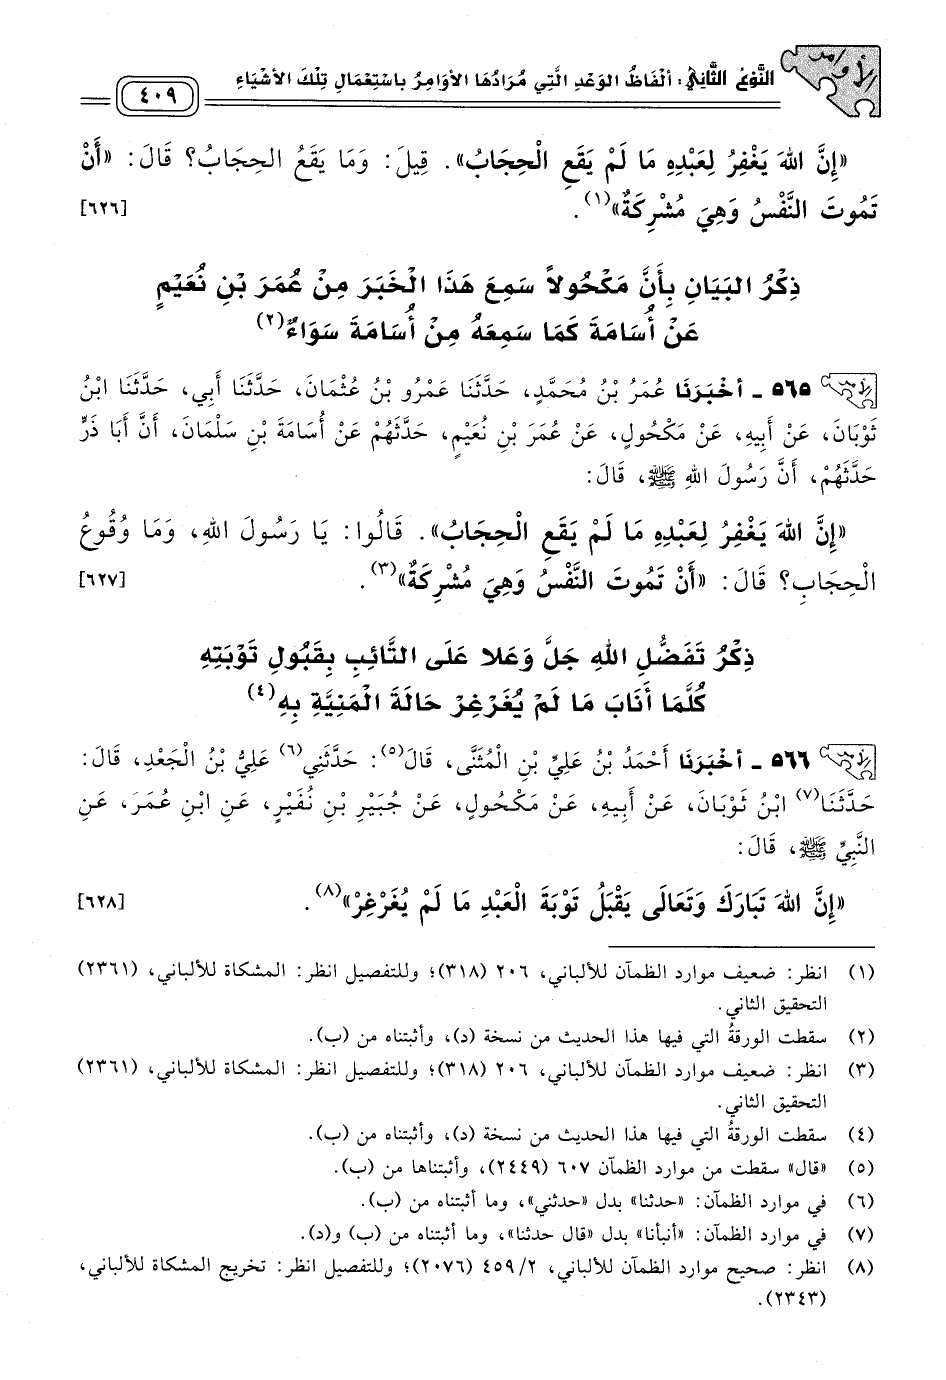 الأوامر
النَّوْعُ الثَّانِي: أَلْفَاظُ الوَعْدِ الَّتِي مُرَادُهَا الأَوَامِرُ بِاسْتِعْمَالِ تِلْكَ الأَشْيَاءِ
٤٠٩
«إِنَّ اللهَ يَغْفِرُ لِعَبْدِهِ مَا لَمْ يَقَعِ الْحِجَابُ». قِيلَ: وَمَا يَقَعُ الحِجَابُ؟ قَالَ: «أَنْ
تَمُوتَ النَّفْسُ وَهِيَ مُشْرِكَةٌ»(١). [٦٢٦]
ذِكْرُ البَيَانِ بِأَنَّ مَكْحُولاً سَمِعَ هَذَا الْخَبَرَ مِنْ عُمَرَ بْنِ نُعَيْمٍ
عَنْ أُسَامَةَ كَمَا سَمِعَهُ مِنْ أُسَامَةَ سَوَاءٌ(٢)
٥٦٥ - أَخْبَرَنَا عُمَرُ بْنُ مُحَمَّدٍ، حَدَّثَنَا عَمْرُو بْنُ عُثْمَانَ، حَدَّثَنَا أَبِي، حَدَّثَنَا ابْنُ
ثَوْبَانَ، عَنْ أَبِيهِ، عَنْ مَكْحُولٍ، عَنْ عُمَرَ بْنِ نُعَيْمٍ، حَدَّثَهُمْ عَنْ أُسَامَةَ بْنِ سَلْمَانَ، أَنَّ أَبَا ذَرٍّ
حَدَّثَهُمْ، أَنَّ رَسُولَ اللهِ ﷺ، قَالَ:
«إِنَّ اللهَ يَغْفِرُ لِعَبْدِهِ مَا لَمْ يَقَعِ الْحِجَابُ». قَالُوا: يَا رَسُولَ اللهِ، وَمَا وُقُوعُ
الْحِجَابِ؟ قَالَ: «أَنْ تَمُوتَ النَّفْسُ وَهِيَ مُشْرِكَةٌ»(٣). [٦٢٧]
ذِكْرُ تَفَضُّلِ اللهِ جَلَّ وَعَلا عَلَى التَّائِبِ بِقَبُولِ تَوْبَتِهِ
كُلَّمَا أَنَابَ مَا لَمْ يُغَرْغِرْ حَالَةَ الْمَنِيَّةِ بِهِ(٤)
٥٦٦ - أَخْبَرَنَا أَحْمَدُ بْنُ عَلِيِّ بْنِ الْمُثَنَّى، قَالَ(٥): حَدَّثَنِي(٦) عَلِيُّ بْنُ الْجَعْدِ، قَالَ:
حَدَّثَنَا(٧) ابْنُ ثَوْبَانَ، عَنْ أَبِيهِ، عَنْ مَكْحُولٍ، عَنْ جُبَيْرِ بْنِ نُفَيْرٍ، عَنِ ابْنِ عُمَرَ، عَنِ
النَّبِيِّ ﷺ، قَالَ:
«إِنَّ اللهَ تَبَارَكَ وَتَعَالَى يَقْبَلُ تَوْبَةَ الْعَبْدِ مَا لَمْ يُغَرْغِرْ»(٨). [٦٢٨]
(١) انظر: ضعيف موارد الظمآن للألباني، ٢٠٦ (٣١٨)؛ وللتفصيل انظر: المشكاة للألباني، (٢٣٦١)
التحقيق الثاني.
(٢) سقطت الورقةُ التي فيها هذا الحديث من نسخة (د)، وأثبتناه من (ب).
(٣) انظر: ضعيف موارد الظمآن للألباني، ٢٠٦ (٣١٨)؛ وللتفصيل انظر: المشكاة للألباني، (٢٣٦١)
التحقيق الثاني.
(٤) سقطت الورقةُ التي فيها هذا الحديث من نسخة (د)، وأثبتناه من (ب).
(٥) «قال» سقطت من موارد الظمآن ٦٠٧ (٢٤٤٩)، وأثبتناها من (ب).
(٦) في موارد الظمآن: «حدثنا» بدل «حدثني»، وما أثبتناه من (ب).
(٧) في موارد الظمآن: «أنبأنا» بدل «قال حدثنا»، وما أثبتناه من (ب) و(د).
(٨) انظر: صحيح موارد الظمآن للألباني، ٤٥٩/٢ (٢٠٧٦)؛ وللتفصيل انظر: تخريج المشكاة للألباني،
(٢٣٤٣).